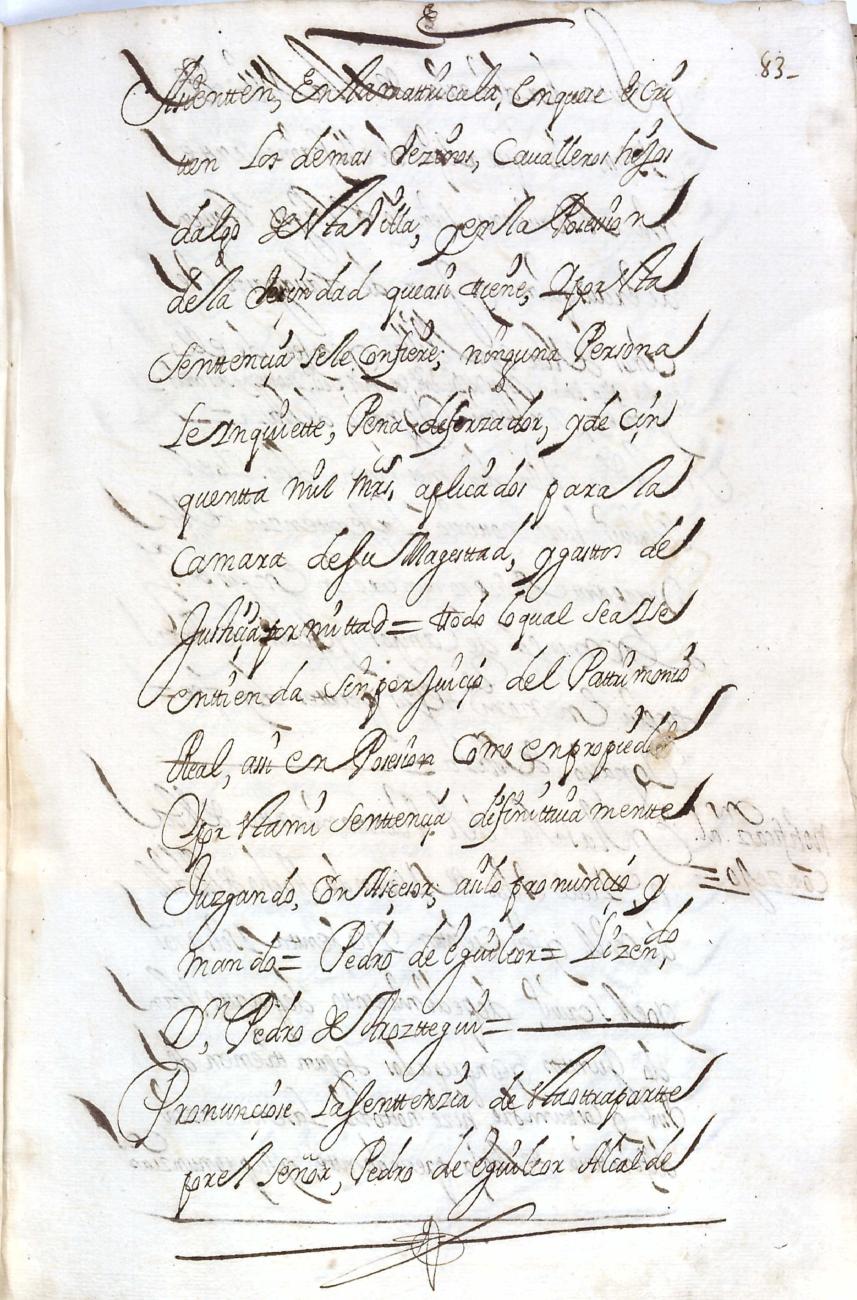 83_
Asienten, En la matricula, En que se escri
tten Los demas vezinos, Cavalleros hijos
dalgo de esta Villa, y en la Posesion
de la Vecindad que asi ttiene, y por esta
Senttencia se le Confiere, ninguna Persona
le ynquiette, Pena de forzador, y de Cin
quentta mil mrs, aplicados para la
Camara de su Magesttad, y gasttos de
Justicia por mittad = ttodo lo qual sea y se
enttienda sin perjuicio del Pattrimonio
Real, asi en Posesion Como en propiedad
y por esta mi Senttencia definittiva mentte
Juzgando, Con Asesor, asi lo pronuncio y
mando = Pedro de Eguileor = Lizen,do
D,n Pedro de Arozttegui =
Pronunciose La Senttenzia de esta otra partte
por el Señor, Pedro de Eguileor Alcalde